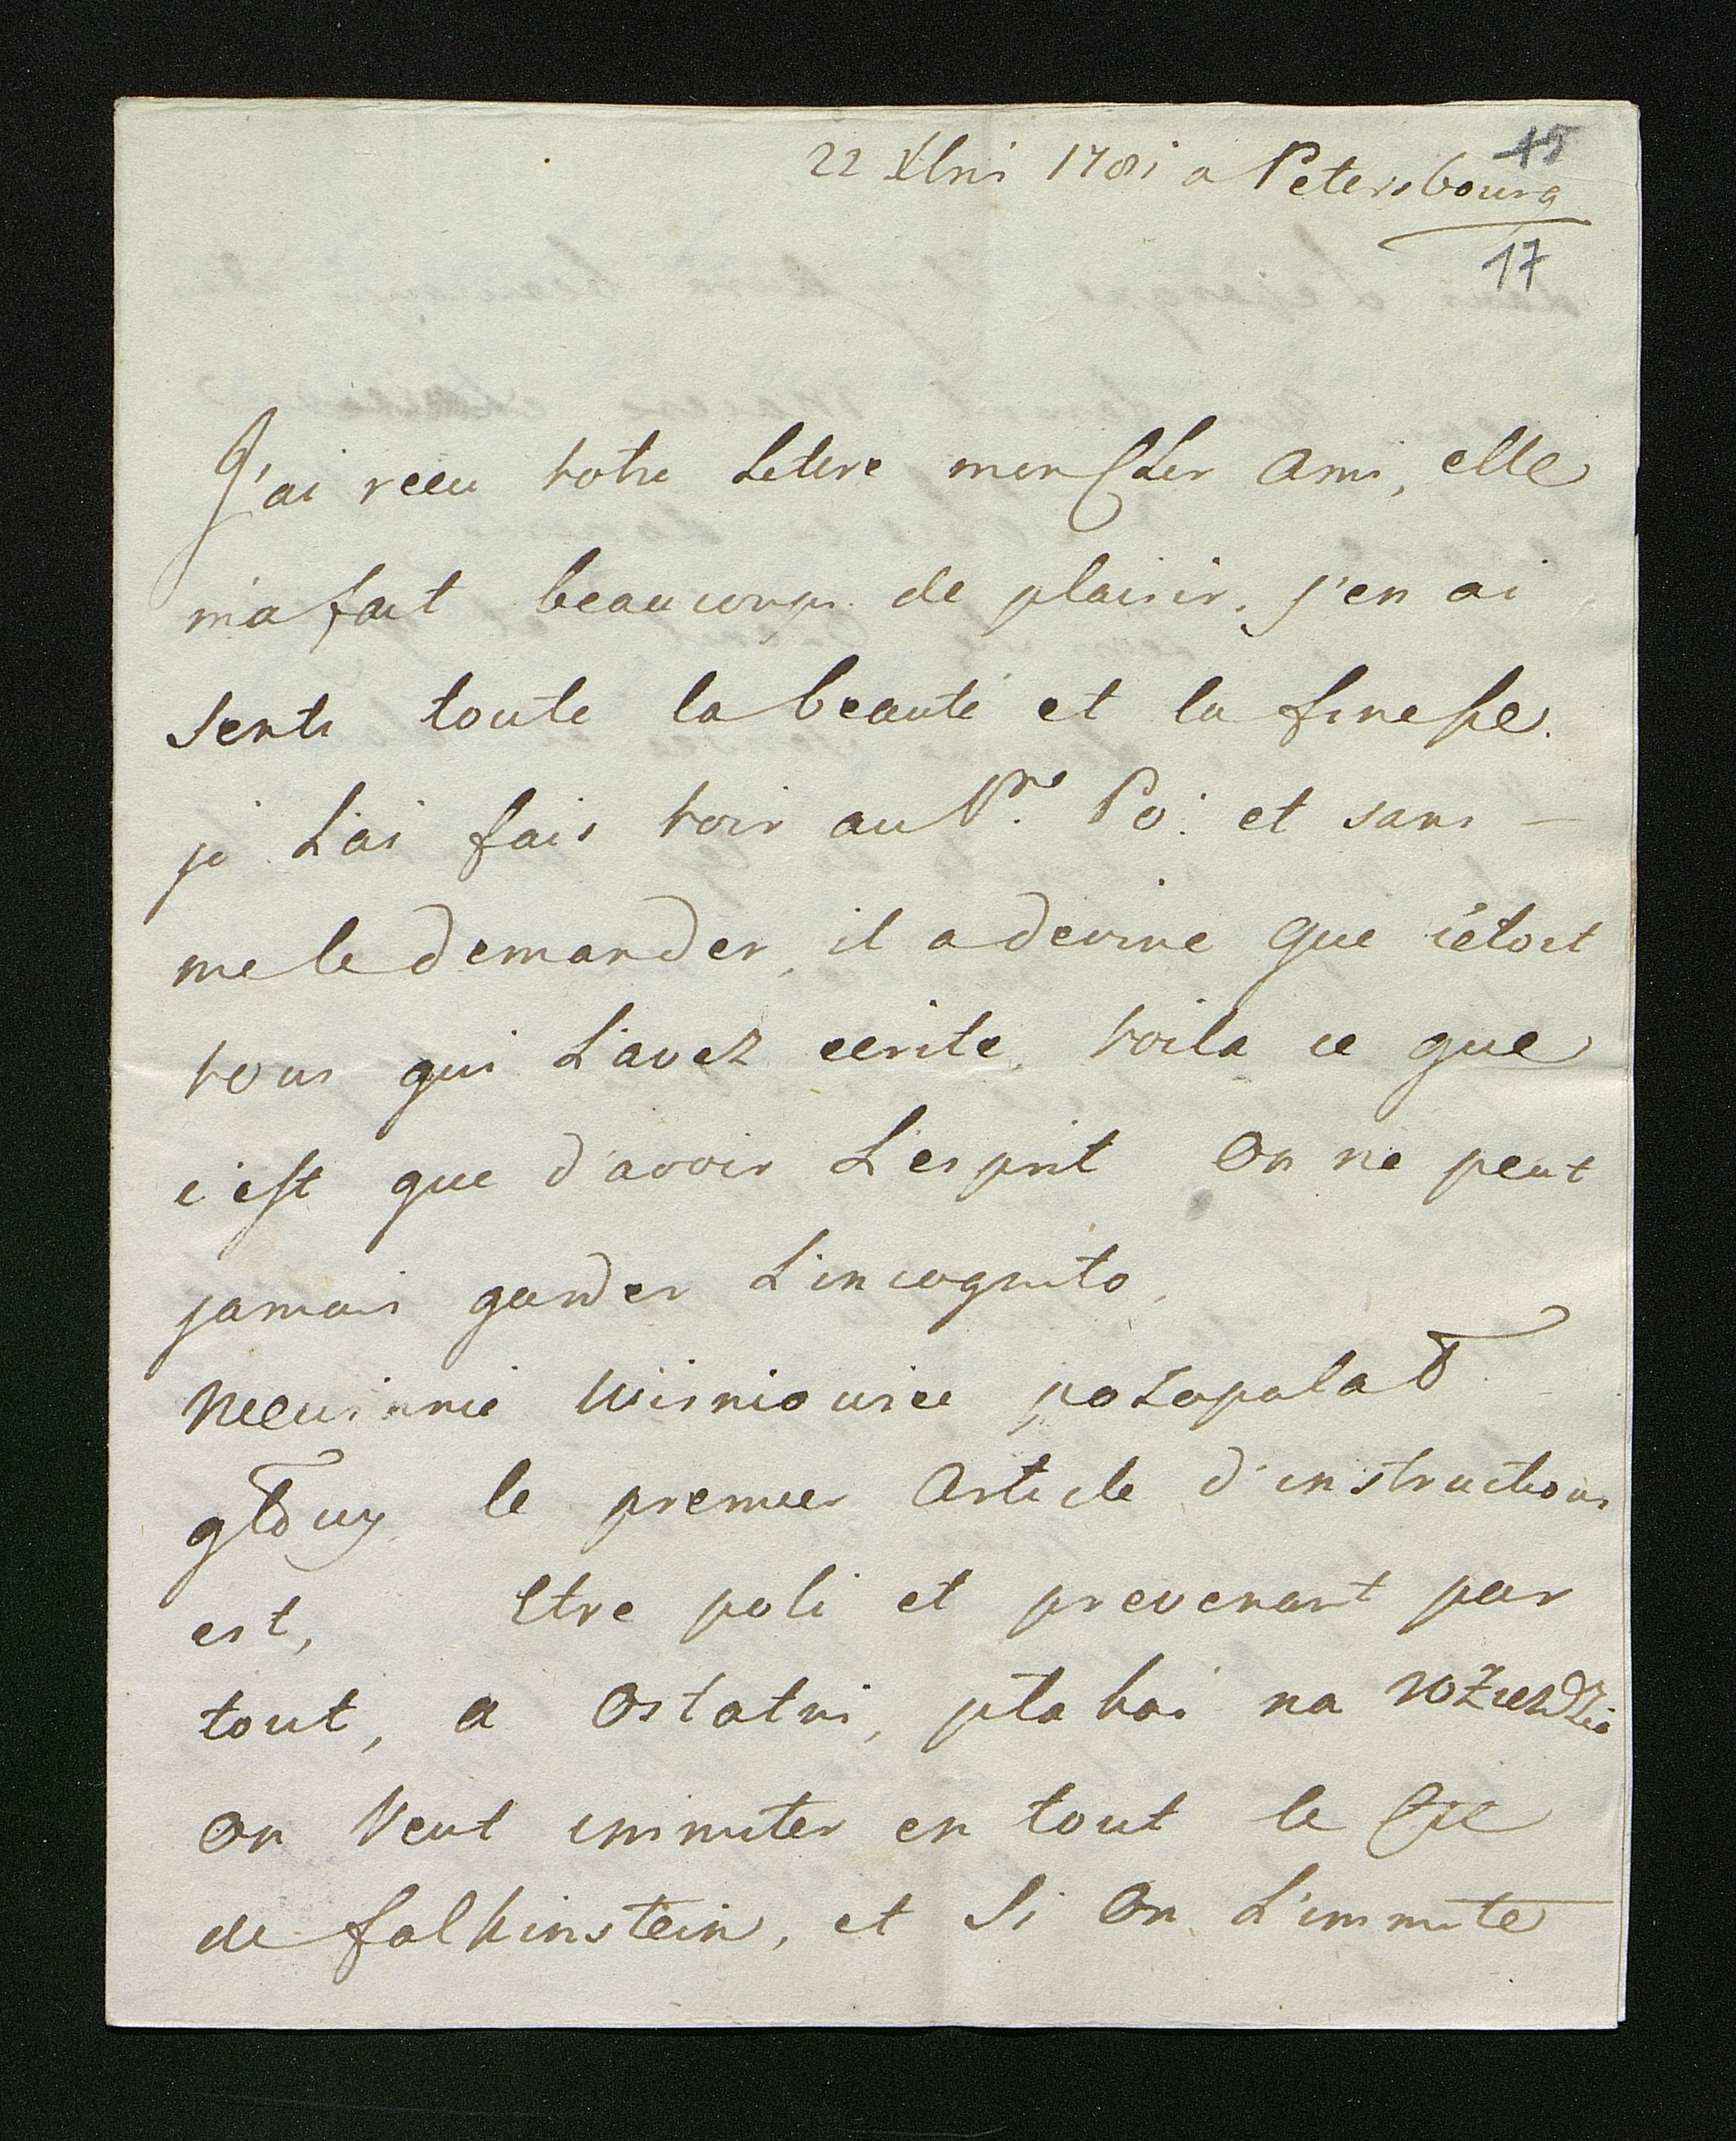 22 Xbris 1781 a Petersbourg
15
17
J'ai reeu votre Lettre mon Cher Ami, elle
m'a fait beaucoups de plaisir, j'en ai
senti toute la beauté et la finesse.
je L'ai fais voir au Pce. Po: et sans —
me le demander, il a devine que c'étoit
vous qui L'avez ecrite, voila ce que
c'est que d'avoir L'esprit On ne peut
jamais garder L'incognito,
Niewinnie Wisniowiec
le premier Article d'instructions
est, Etre poli et prevenant par
tout, a Ostatni, płakai na
On Veut immiter en tout le Cte
de falkinstein, et Si On L'immite